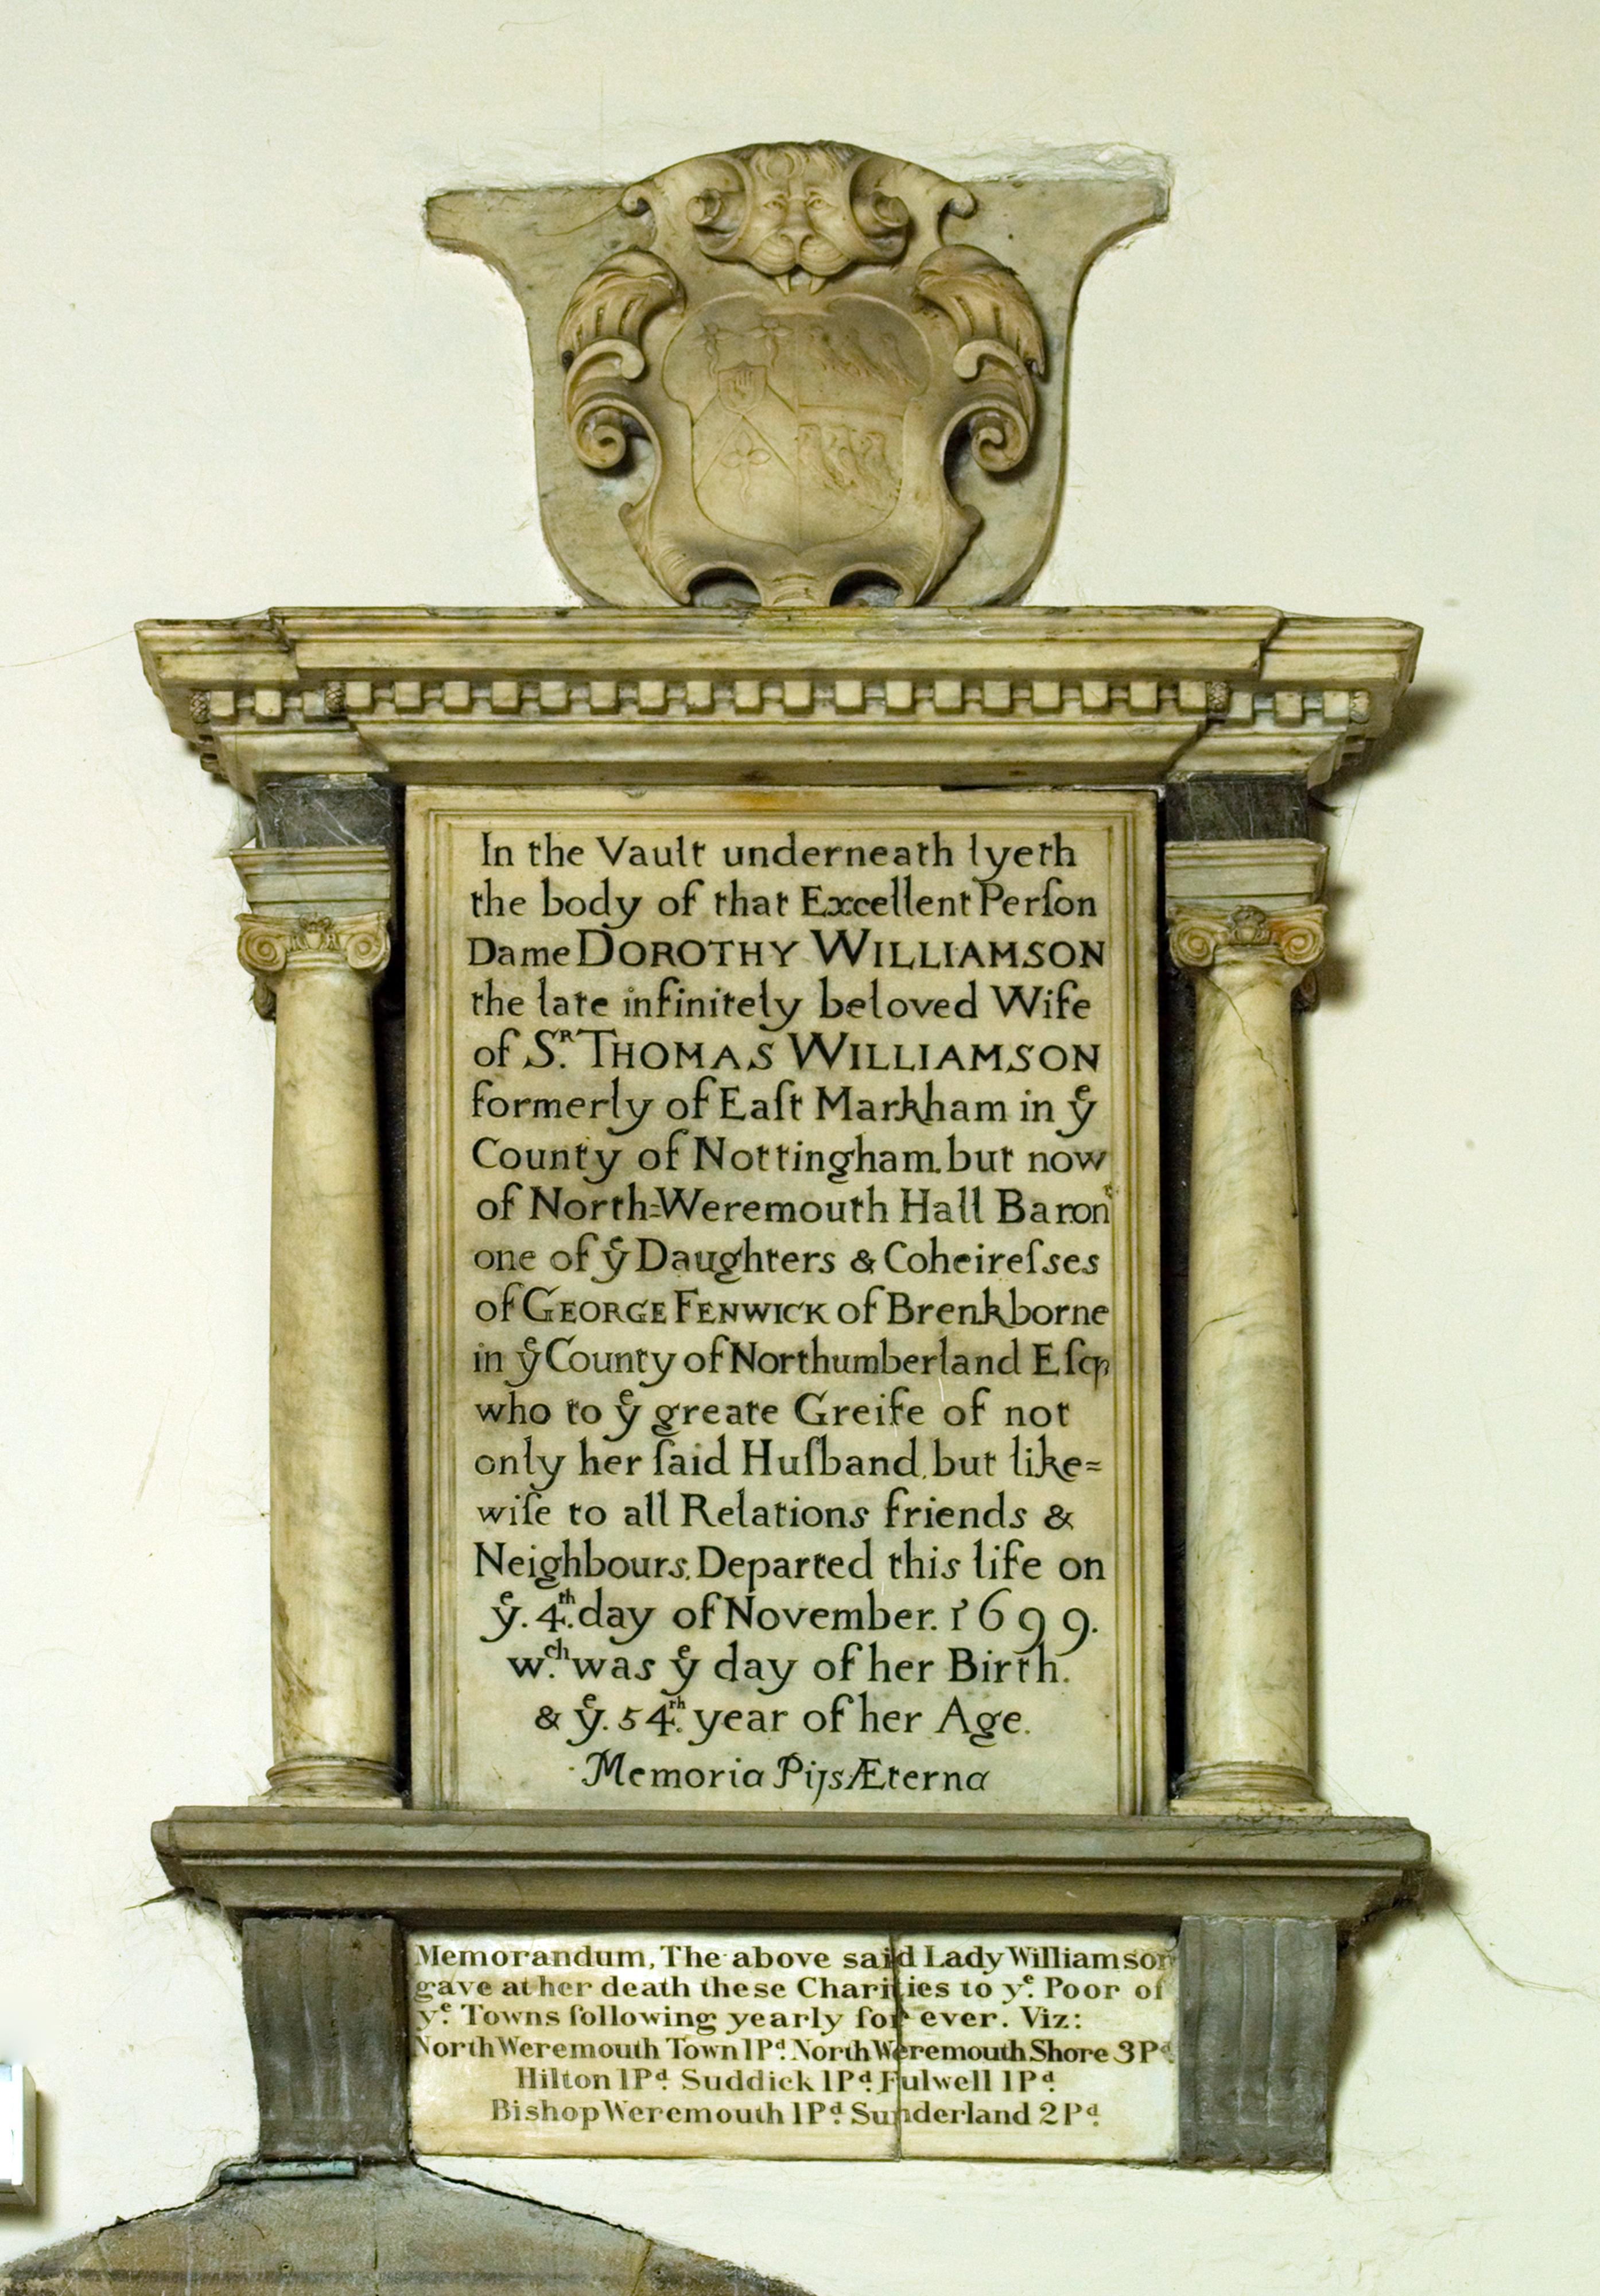 In the Vault underneath lyeth
the body of that Excellent Perſon
Dame DOROTHY WILLIAMSON
the late infinitely beloved Wife
of Sʀ. THOMAS WILLIAMSON
formerly of Eaſt Markham in yͤ
County of Nottingham. but now
of North=Weremouth Hall Baronᵗ
one of yͤ Daughters & Coheireſses
of GEORGE FENWICK of Brenkborne
in yͤ County of Northumberland Eſqꝫ
who to yͤ greate Greife of not
only her ſaid Huſband, but like=
wiſe to all Relations friends &
Neighbours. Departed this life on
yͤ. 4ᵗʰ. day of November. 1699.
wᶜʰ. was yͤ day of her Birth.
& yͤ. 54ᵗʰ. year of her Age.
Memoria Pijs Æterna
Memorandum, The above said Lady Williamson
gave at her death these Charities to yᵉ. Poor of
yᵉ. Towns following yearly for ever. Viz:
North Weremouth Town 1Pᵈ. North Weremouth Shore 3Pᵈ.
Hilton 1Pᵈ. Suddick 1Pᵈ. Fulwell 1Pᵈ.
Bishop Weremouth 1Pᵈ. Sunderland 2Pᵈ.